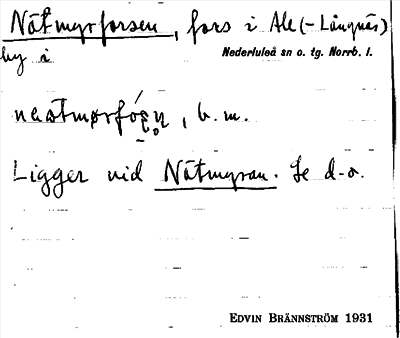 Nötmyrforsen, fors i Ale (-Långnäs)
by i Nederluleå sn o. tg. Norrb. l.
, b. m.
Ligger vid Nötmyran. Se d.o.
EDVIN BRÄNNSTRÖM 1931